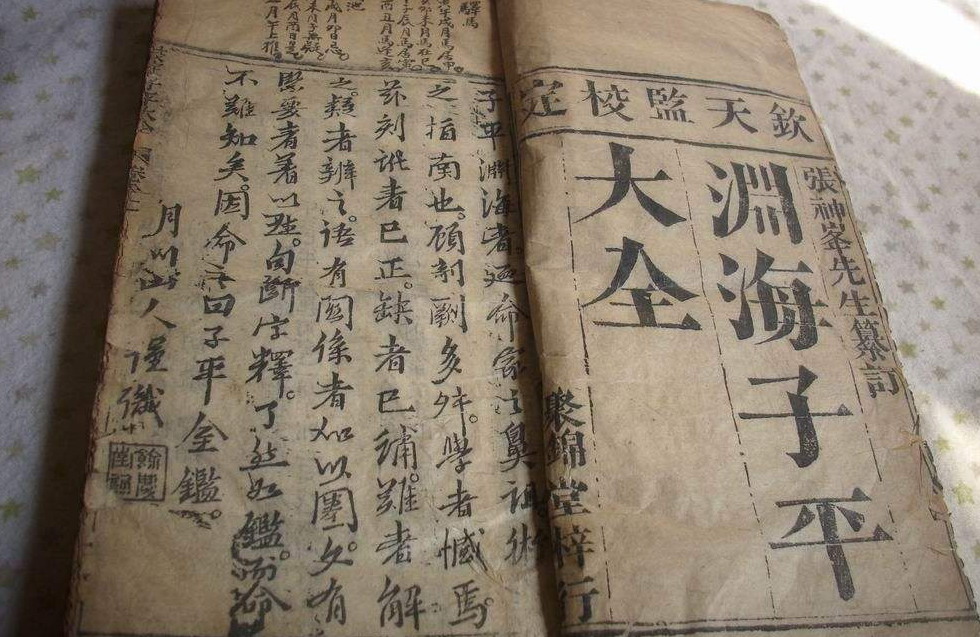 欽天監校定
張神峯先生纂訂
淵海子平
大全
聚錦堂梓行
子平淵海者迺命家之鼻祖術
之指南也。顧刻劂多舛。學者憾焉。
茲刻訛者已正。缺者已補。難者解
之。類者辨之。語有關係者如以圈。文有
緊要者著以點。句斷字釋。了然如鑑。而命
不難知矣。因命之曰子平全鑑。
月川山人謹識
驛馬